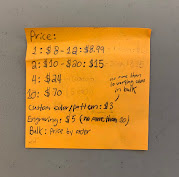 Price:
1: $8-12: $8.99
2: $10-$20: $15
4: $24
10: $70
no more than
color
in bulk
Custom color/pattern: $3
Engraving: $5 (no more than 10)
Bulk: Price by order